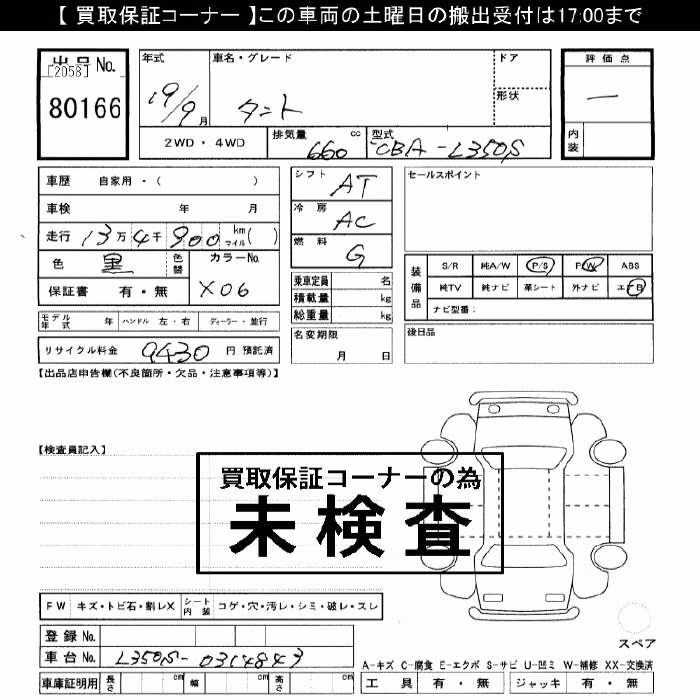 【 買取保証コーナー 】この車両の土曜日の搬出受付は17:00まで
出品No. [2058]
80166
年式 19/9月
車名・グレード タント
ドア
形状
評価点 一
内装
2WD・4WD
排気量 660 cc
型式 CBA-L350S
車歴 自家用・( )
車検 年 月
走行 13万4千900 km マイル( )
色 黒 色替 カラーNo. X06
保証書 有・無
シフト AT
冷房 AC
燃料 G
乗車定員 名
積載量 kg
総重量 kg
名変期限 月 日
セールスポイント
装備品 S/R 純A/W P/S P/W ABS
純TV 純ナビ 革シート 外ナビ エアB
ナビ型番:
後日品
モデル年式 年 ハンドル 左・右 ディーラー・並行
リサイクル料金 9430 円 預託済
【出品店申告欄(不良箇所・欠品・注意事項等)】
【検査員記入】
買取保証コーナーの為
未検査
FW キズ・トビ石・割レX シート内装 コゲ・穴・汚レ・シミ・破レ・スレ
登録No.
車台No. L350S-0314843
スペア
A-キズ C-腐食 E-エクボ S-サビ U-凹ミ W-補修 XX-交換済
車庫証明用 長さ cm 幅 cm 高さ cm
工具 有・無 ジャッキ 有・無